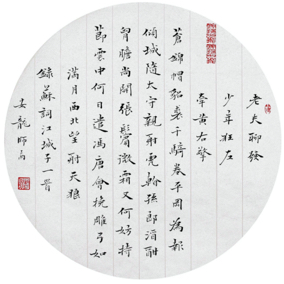 老夫聊發
少年狂左
牽黃右擎
蒼錦帽貂裘千騎卷平岡為報
傾城隨太守親射虎看孫郎酒酣
胸膽尚開張鬢微霜又何妨持
節雲中何日遣馮唐會挽雕弓如
滿月西北望射天狼
錄蘇詞江城子一首